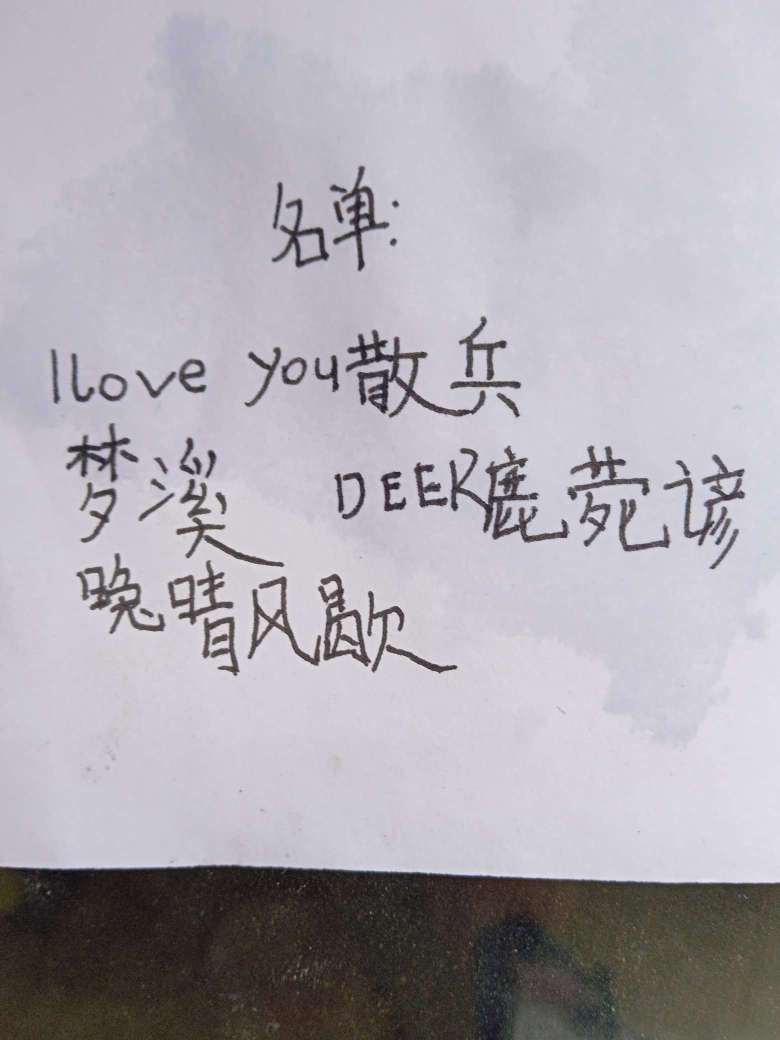 名单:
I Love you散兵
梦溪 DEER鹿菀谚
晚晴风歇